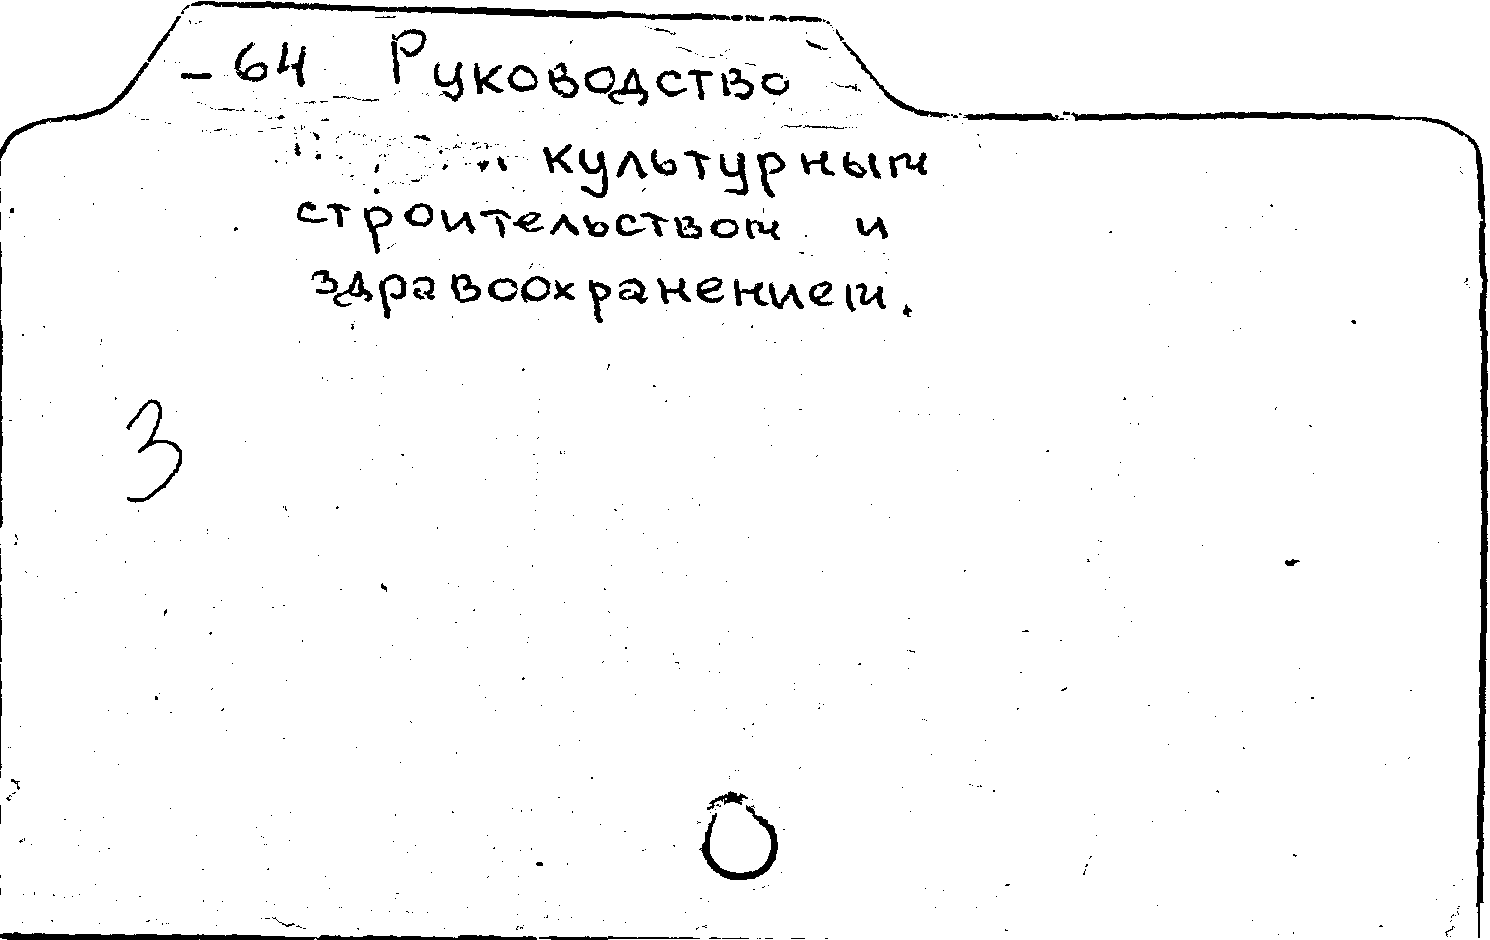 -64 Руководство
культурным
строительством и
здравоохранением.
3